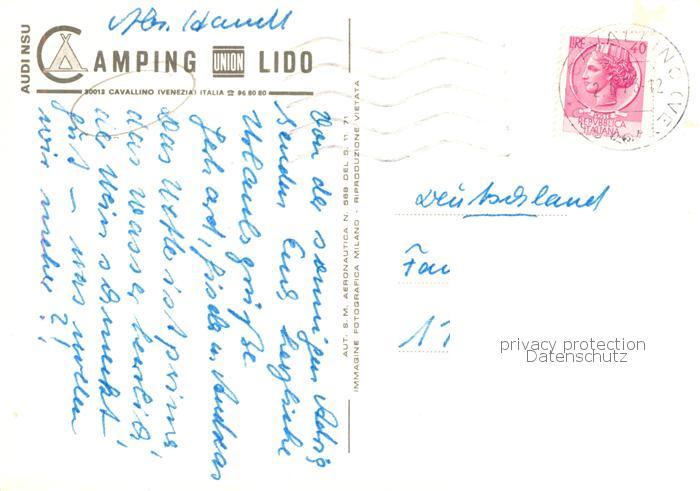 Abs. Hanell
AUDI NSU
CAMPING UNION LIDO
30013 CAVALLINO (VENEZIA) ITALIA ☎ 96 80 80
Von der sonnigen Adria
senden Euch herzliche
Urlaubsgrüße
Gerhard, Gisela u. Andreas
Das Wetter ist prima,
das Wasser herrlich,
der Wein schmeckt
gut – was wollen
wir mehr?!
AUT. S. M. AERONAUTICA N. 568 DEL 5. 11. 71
IMMAGINE FOTOGRAFICA MILANO - RIPRODUZIONE VIETATA
LIRE 40
POSTE
REPUBBLICA
ITALIANA
Deutschland
privacy protection
Datenschutz